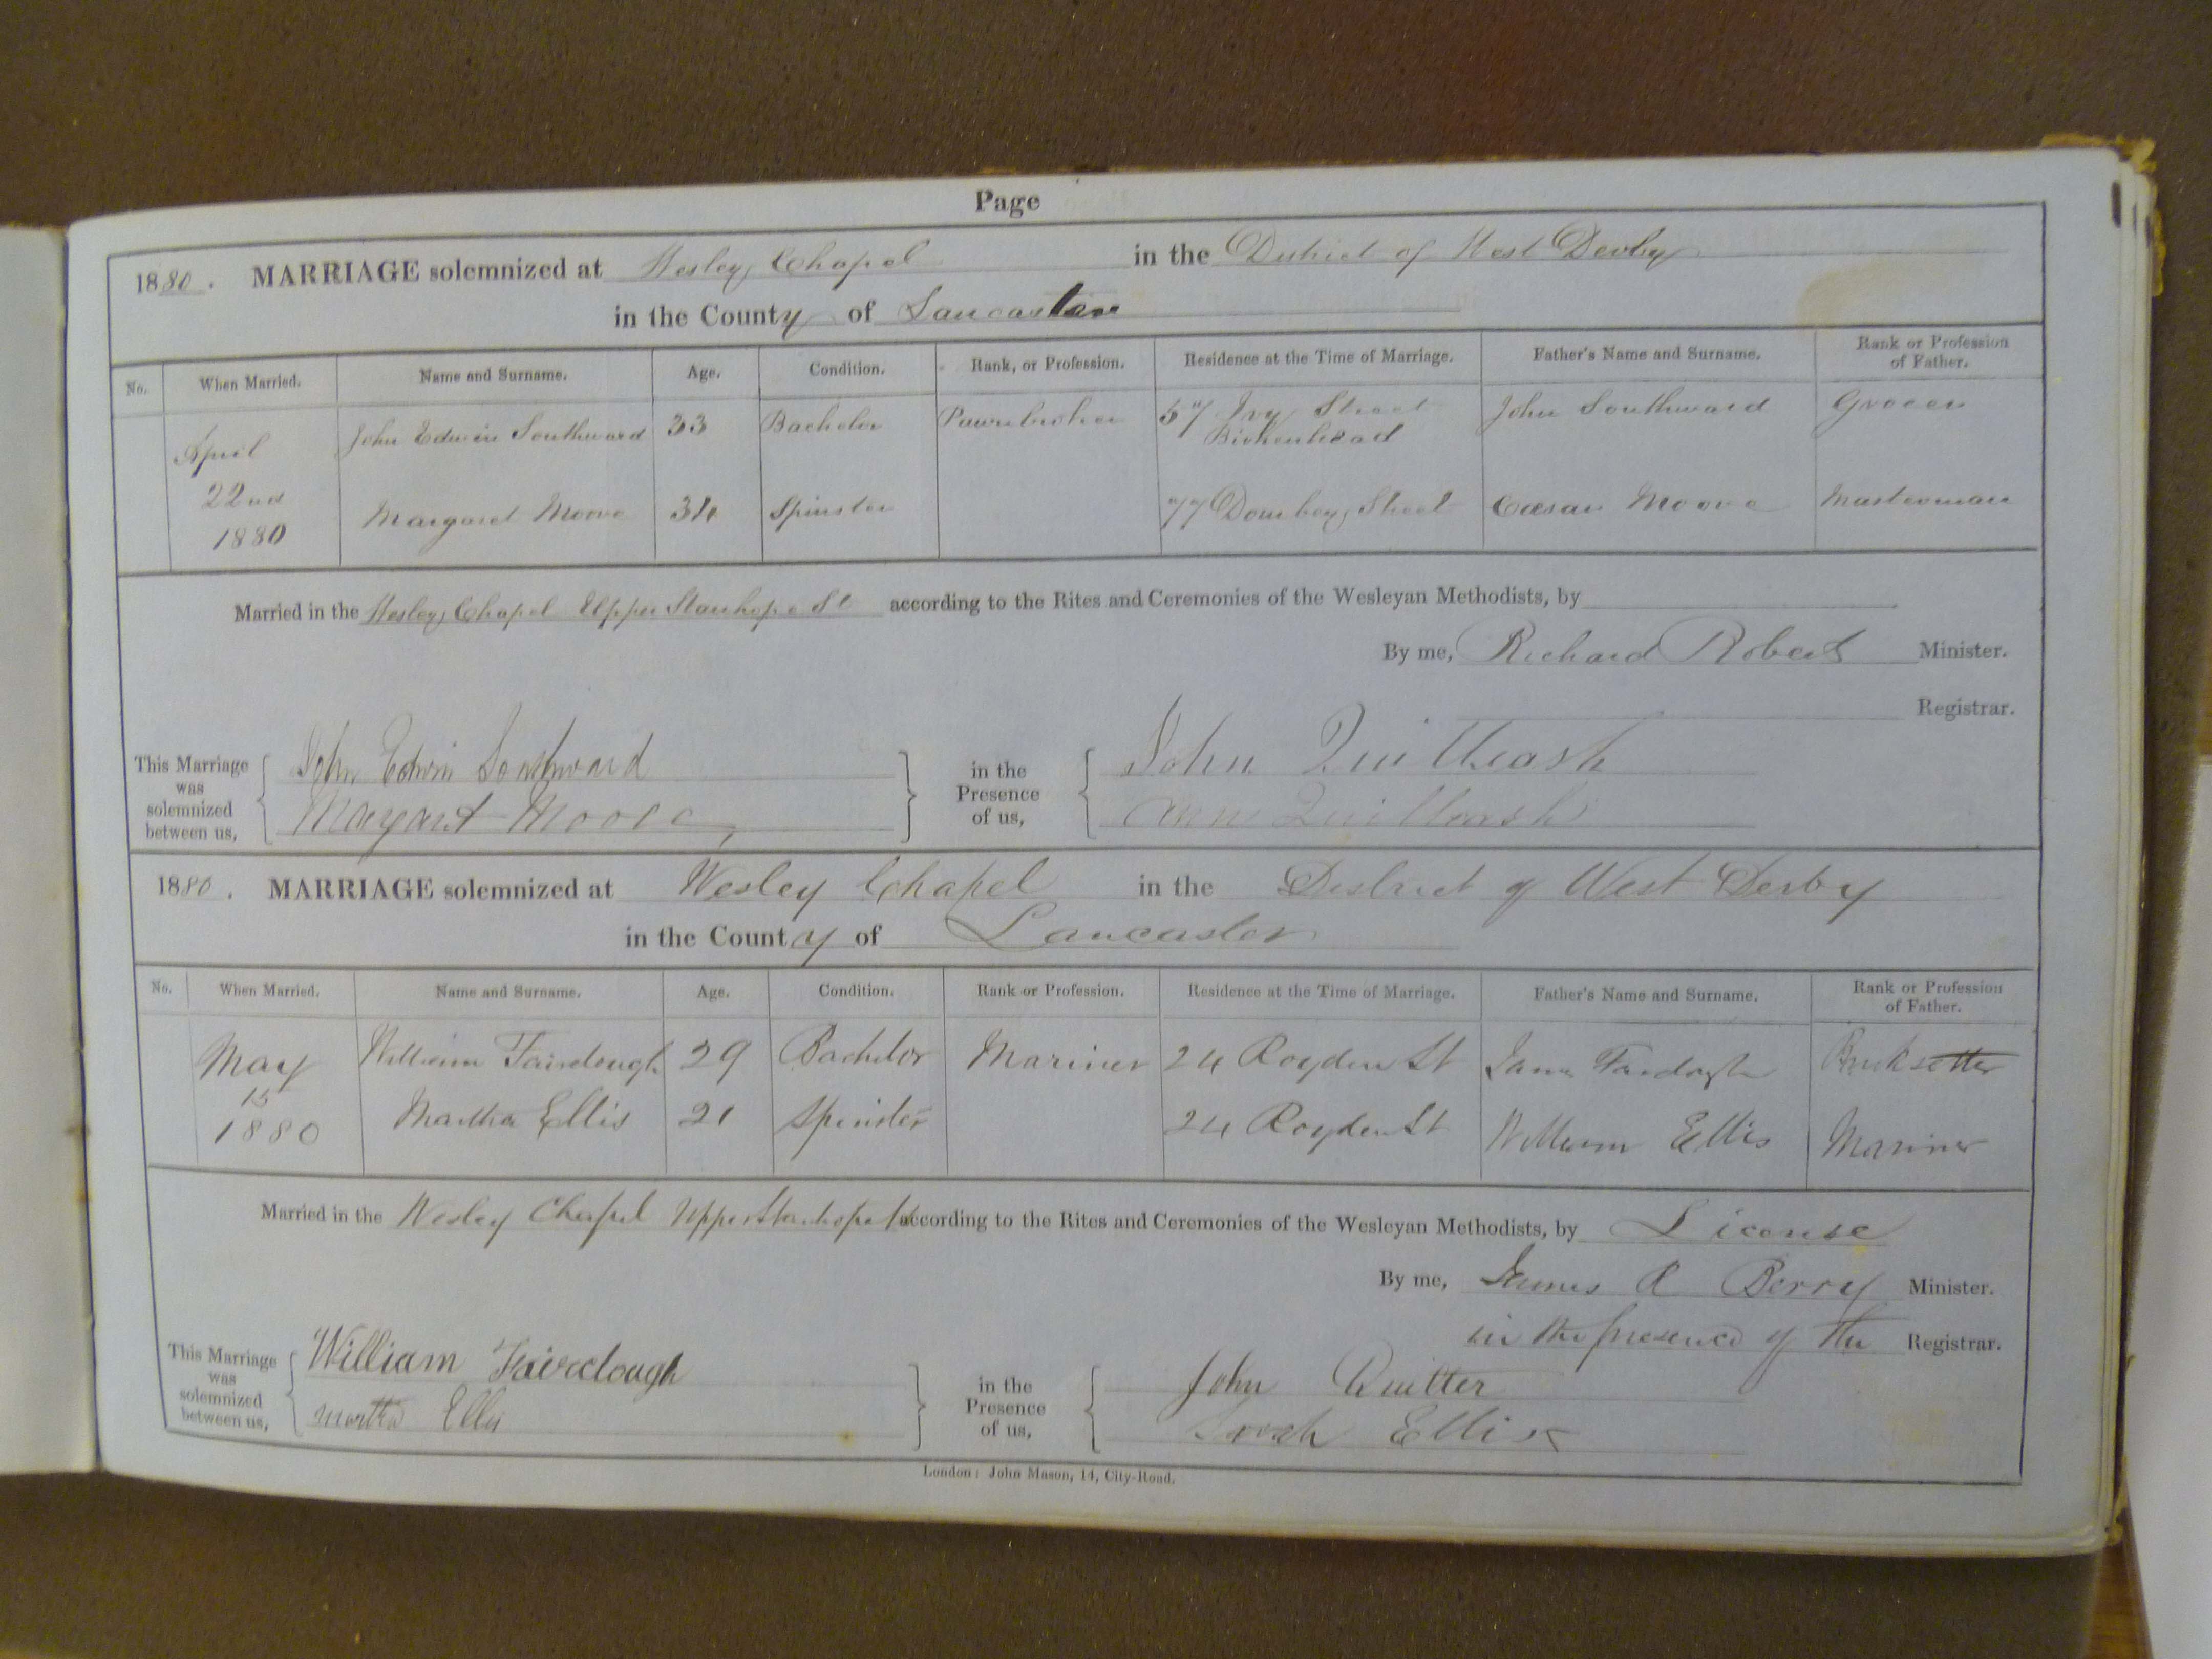 Page
1880. MARRIAGE solemnized at Wesley Chapel in the District of West Derby
in the County of Lancaster
No. When Married. Name and Surname. Age. Condition. Rank, or Profession. Residence at the Time of Marriage. Father's Name and Surname. Rank or Profession of Father.
April 22nd 1880
John Edwin Southward 33 Bachelor Pawnbroker 57 Ivy Street Birkenhead John Southward Grocer
Margaret Moore 34 Spinster 77 Dombey Street Cæsar Moore
Married in the Wesley Chapel Upper Stanhope St according to the Rites and Ceremonies of the Wesleyan Methodists, by
By me, Richard Roberts Minister.
Registrar.
This Marriage was solemnized between us, John Edwin Southward in the Presence of us, John Quilleash
Margaret Moore Anne Quilleash
1880. MARRIAGE solemnized at Wesley Chapel in the District of West Derby
in the County of Lancaster
No. When Married. Name and Surname. Age. Condition. Rank or Profession. Residence at the Time of Marriage. Father's Name and Surname. Rank or Profession of Father.
May 15 1880
William Fairclough 29 Bachelor Mariner 24 Royden St Fairclough Bricksetter
Martha Ellis 21 Spinster 24 Royden St William Ellis Mariner
Married in the Wesley Chapel Upper Stanhope St according to the Rites and Ceremonies of the Wesleyan Methodists, by License
By me, James R Berry Minister.
in the presence of the Registrar.
This Marriage was solemnized between us, William Fairclough in the Presence of us, John Quitter
Martha Ellis Sarah Ellis
London: John Mason, 14, City-Road.